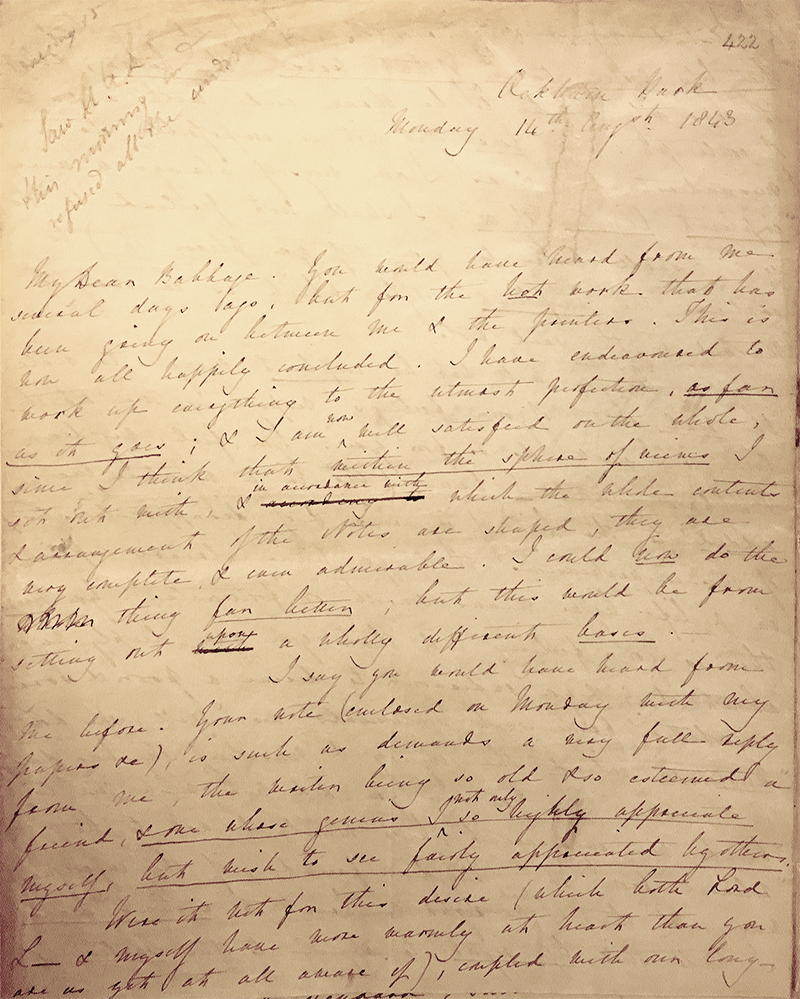 422
Saw A. A. L.
this morning
refused all the
Ockham Park
Monday 14th Augst. 1843
My Dear Babbage. You would have heard from me
several days ago, but for the hot work that has
been going on between me & the printers. This is
now all happily concluded. I have endeavoured to
work up everything to the utmost perfection, as far
as it goes; & I am now well satisfied on the whole,
since I think that within the sphere of views I
set out with, & in accordance with which the whole contents
& arrangement of the Notes are shaped, they are
very complete, & even admirable. I could now do the
thing far better; but this would be from
setting out upon a wholly different basis.
I say you would have heard from
me before. Your note (enclosed on Monday with my
papers &c), is such as demands a very full reply
from me, the writer being so old & so esteemed a
friend, & one whose genius I not only so highly appreciate
myself, but wish to see fairly appreciated by others.
Were it not for this desire (which both Lord
L— & myself have more warmly at heart than you
are as yet at all aware of), coupled with our long-